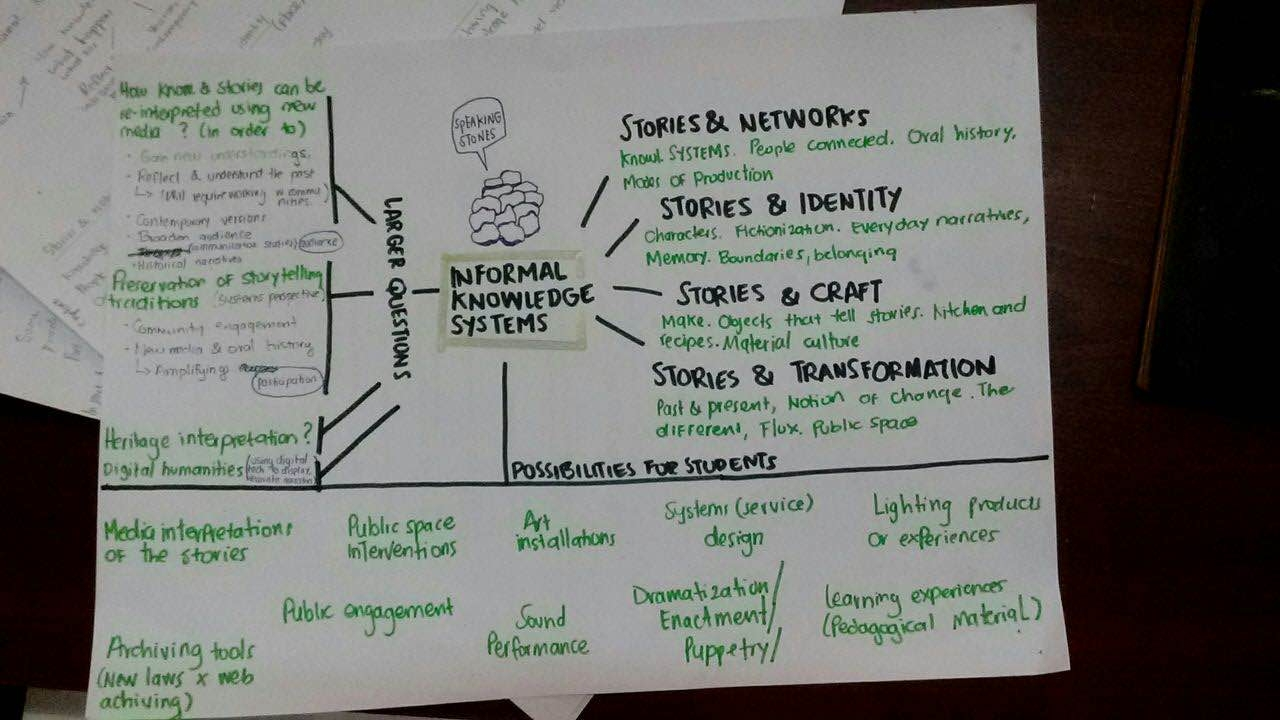 How know & stories can be
re-interpreted using new
media? (in order to)
• Gain new understandings.
• Reflect & understand the past
↳ (Will require working w commu
nities)
• Contemporary versions
• Broaden audience
(communication studies) audience
• Historical narratives
Preservation of storytelling
traditions (systems perspective)
• Community engagement
• New media & oral history
↳ Amplifying
participation
Heritage interpretation?
Digital humanities (using digital
tech to display,
LARGER QUESTIONS
SPEAKING
STONES
INFORMAL
KNOWLEDGE
SYSTEMS
STORIES & NETWORKS
Knowl. SYSTEMS. People connected. Oral history.
Modes of Production
STORIES & IDENTITY
Characters. Fictionization. Everyday narratives,
Memory. Boundaries, belonging
STORIES & CRAFT
Make. Objects that tell stories. Kitchen and
recipes. Material culture
STORIES & TRANSFORMATION
Past & present, Notion of change. The
different, Flux. Public space
POSSIBILITIES FOR STUDENTS
Media interpretations
of the stories
Public space
Interventions
Art
installations
Systems (service)
design
Lighting products
or experiences
Public engagement
Sound
Performance
Dramatization/
Enactment/
Puppetry/
Learning experiences
(Pedagogical Material)
Archiving tools
(New laws x web
achiving)